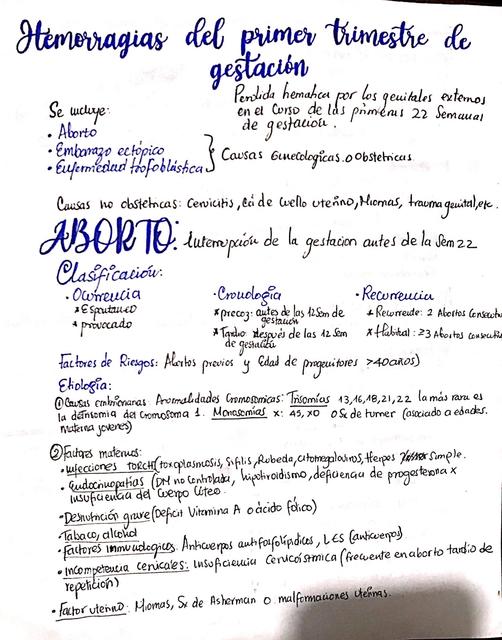 Hemorragias del primer trimestre de
gestación
Perdida hematica por los genitales externos
en el Curso de las primeras 22 Semanas
de gestacion.
Se incluye:
• Aborto
• Embarazo ectópico
• Enfermedad trofoblástica
Causas Ginecologicas o Obstetricas
Causas no obstetricas: Cervicitis, Ca de cuello uterino, Miomas, trauma genital, etc.
ABORTO: Interrupción de la gestacion antes de la Sem 22
Clasificación:
• Ocurrencia
* Espontaneo
* provocado
• Cronologia
* precoz: antes de las 12 Sem de
gestación
* Tardio: después de las 12 Sem
de gestación
• Recurrencia
* Recurrente: 2 Abortos Consecutiv
* Habitual: ≥3 Abortos consecutiv
Factores de Riesgos: Abortos previos y Edad de progenitores >40 años)
Etiologia:
① Causas embrionarias: Anormalidades Cromosomicas: Trisomias 13,16,18,21,22 la más rara es
la del cromosoma 1. Monosomias X: 45,X0 o Sx de turner (asociado a edades.
materna jovenes)
② Factores maternos:
• Infecciones TORCH (toxoplasmosis, Sifilis, Rubeola, citomegalovirus, Herpes simple.
• Endocrinopatias (DM no Controlada, hipotiroidismo, deficiencia de progesterona x
insuficiencia del Cuerpo Lúteo.
• Desnutrición grave (Deficit Vitamina A o ácido fólico)
• Tabaco, alcohol
• Factores inmunologicos: Anticuerpos antifosfolípidicos, LES (anticuerpos)
• Incompetencia cervicales: Insuficiencia Cervicoistmica (frecuente en aborto tardio de
repetición)
• Factor uterino: Miomas, Sx de Asherman o malformaciones uterinas.